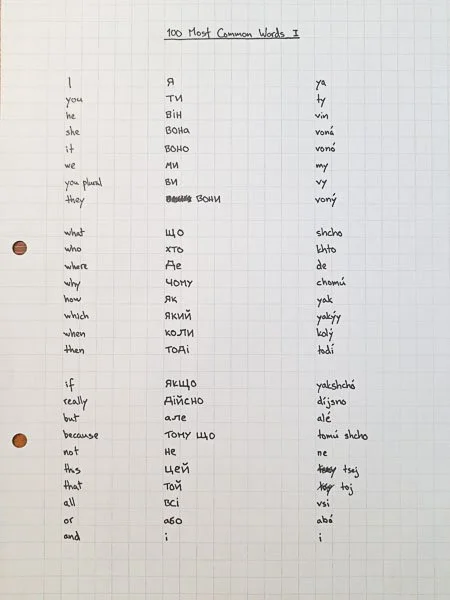 100 Most Common Words I
I я ya
you ти ty
he він vin
she вона voná
it воно vonó
we ми my
you plural ви vy
they вони voný
what що shcho
who хто khto
where де de
why чому chomú
how як yak
which який yakýy
when коли kolý
then тоді todí
if якщо yakshchó
really дійсно díjsno
but але alé
because тому що tomú shcho
not не ne
this цей tsej
that той toj
all всі vsi
or або abó
and і i